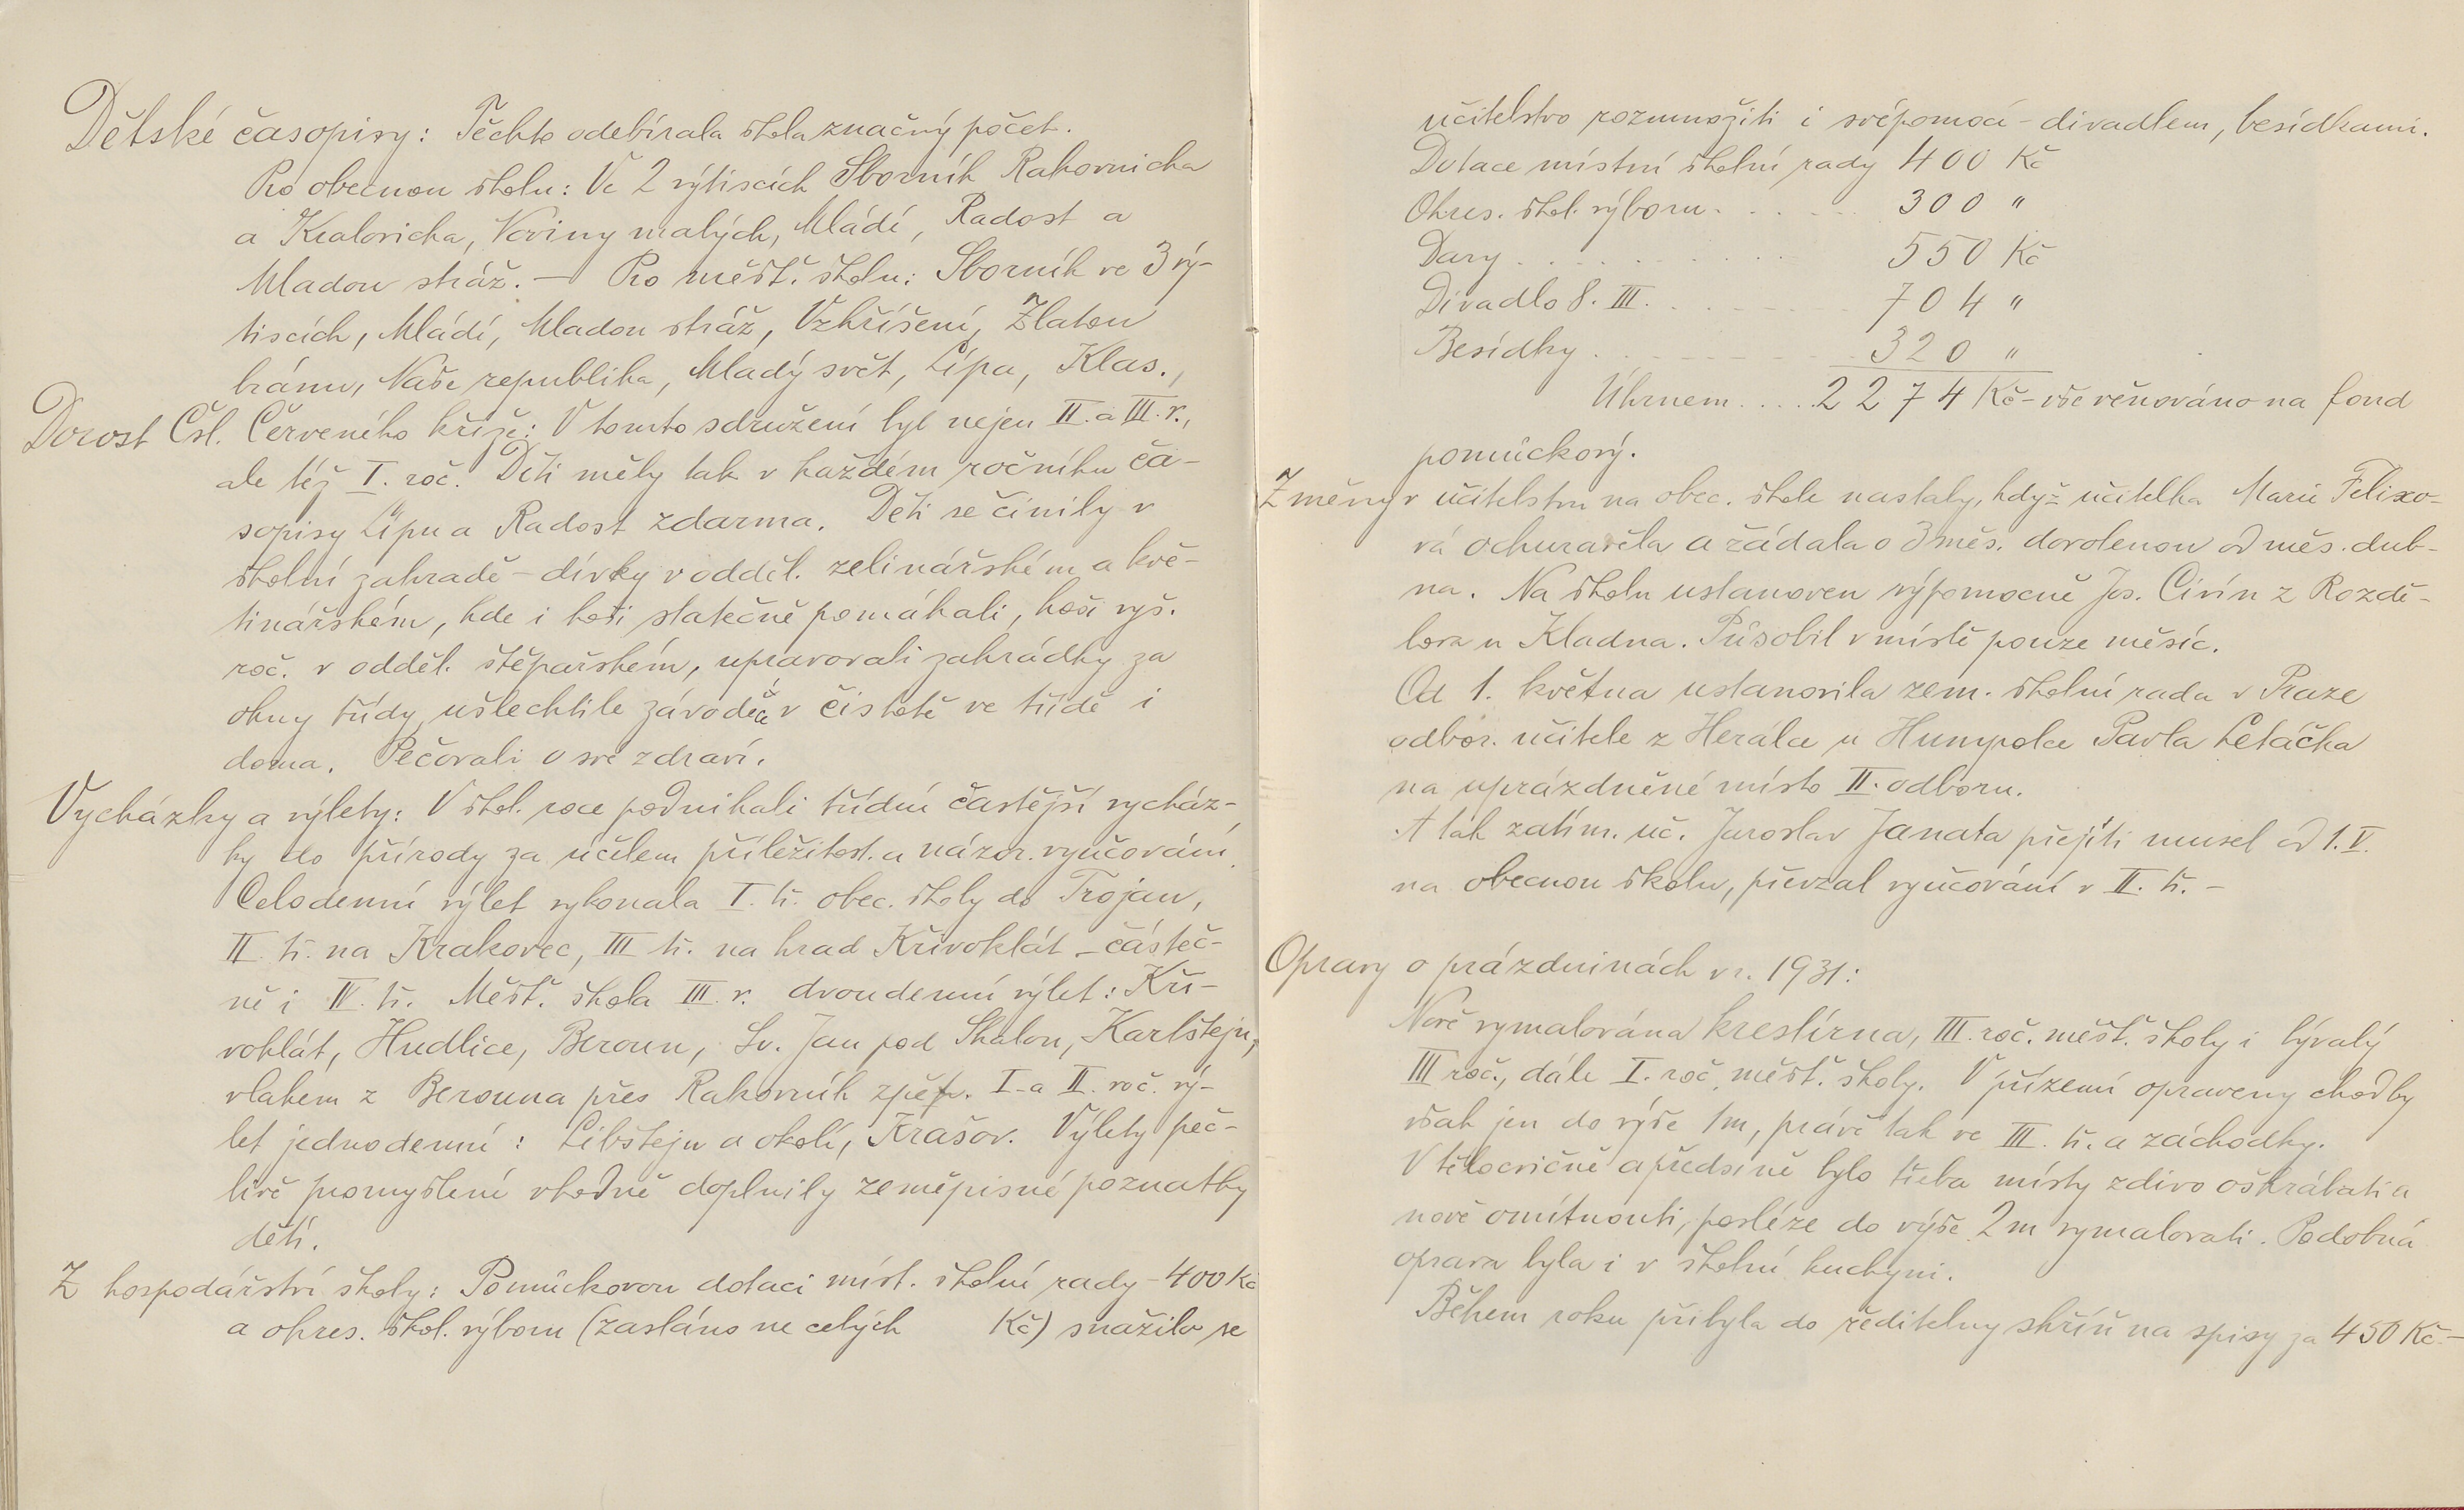 Dětské časopisy: Těchto odebírala škola značný počet.
Pro obecnou školu: Ve 2 výtiscích Sborník Rakovnicka
a Kralovicka, Noviny malých, Mládí, Radost a
Mladou stráž. — Pro měšť. školu: Sborník ve 3 vý-
tiscích, Mládí, Mladou stráž, Vzkříšení, Zlatou
bránu, Naše republika, Mladý svět, Lípa, Klas.,
Dorost Čsl. Červeného kříže: V tomto sdružení byl nejen II. a III. r.,
ale též I. roč. Děti měly tak v každém ročníku ča-
sopisy Lípu a Radost zdarma. Děti se činily v
školní zahradě – dívky v odděl. zelinářském a kvě-
tinářském, kde i hoši statečně pomáhali, hoši vyš.
roč. v odděl. štěpařském, upravovali zahrádky za
okny třídy, ušlechtile závodíce v čistotě ve třídě i
doma. Pečovali o své zdraví.
Vycházky a výlety: V škol. roce podnikali třídní častější vycház-
ky do přírody za účelem příležitost. a názor. vyučování.
Celodenní výlet vykonala I. tř. obec. školy do Trojan,
II. tř. na Krakovec, III tř. na hrad Křivoklát – částeč-
ně i IV. tř. Měšť. škola III. r. dvoudenní výlet: Kři-
voklát, Hudlice, Beroun, Sv. Jan pod Skalou, Karlštejn,
vlakem z Berouna přes Rakovník zpět. I. a II. roč. vý-
let jednodenní: Libštejn a okolí, Krašov. Výlety peč-
livě promyšlené vhodně doplnily zeměpisné poznatky
dětí.
Z hospodářství školy: Pomůckovou dotaci míst. školní rady – 400 Kč
a okres. škol. výboru (zasláno ne celých Kč) snažilo se
učitelstvo rozmnožiti i svépomocí – divadlem, besídkami.
Dotace místní školní rady 400 Kč
Okres. škol. výboru . . . . . 300 "
Dary . . . . . . . . . . 550 Kč
Divadlo 8. III. . . . . . . 704 "
Besídky . . . . . . . . 320 "
Úhrnem . . . . 2274 Kč – vše věnováno na fond
pomůckový.
Změny v učitelstvu na obec. škole nastaly, když učitelka Marie Felixo-
vá ochuravěla a žádala o 3 měs. dovolenou od měs. dub-
na. Na školu ustanoven výpomocně Jos. Civín z Rozdě-
lova u Kladna. Působil v místě pouze měsíc.
Od 1. května ustanovila zem. školní rada v Praze
odbor. učitele z Herálce u Humpolce Pavla Letáčka
na uprázdněné místo II. odboru.
A tak zatím. uč. Jaroslav Janata přejíti musel od 1. V.
na obecnou školu, převzal vyučování v II. tř. –
Opravy o prázdninách v r. 1931:
Nově vymalována kreslírna, III. roč. měšť. školy i bývalý
III roč., dále I. roč. měšť. školy. V přízemí opraveny chodby
však jen do výše 1m, právě tak ve III. tř. a záchodky.
V tělocvičně a předsíně bylo třeba místy zdivo oškrábati a
nově omítnouti, posléze do výše 2 m vymalovati. Podobná
oprava byla i v školní kuchyni.
Během roku přibyla do ředitelny skříň na spisy za 450 Kč.–